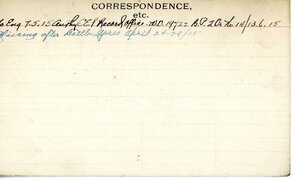 CORRESPONDENCE,
etc.
to Eng. 7-5-15 Auth. C.E.F. Record Office A.O. 19722 B.P. 2 Or. No 14/13.6.15
Missing after Battle Ypres April 24-29/15